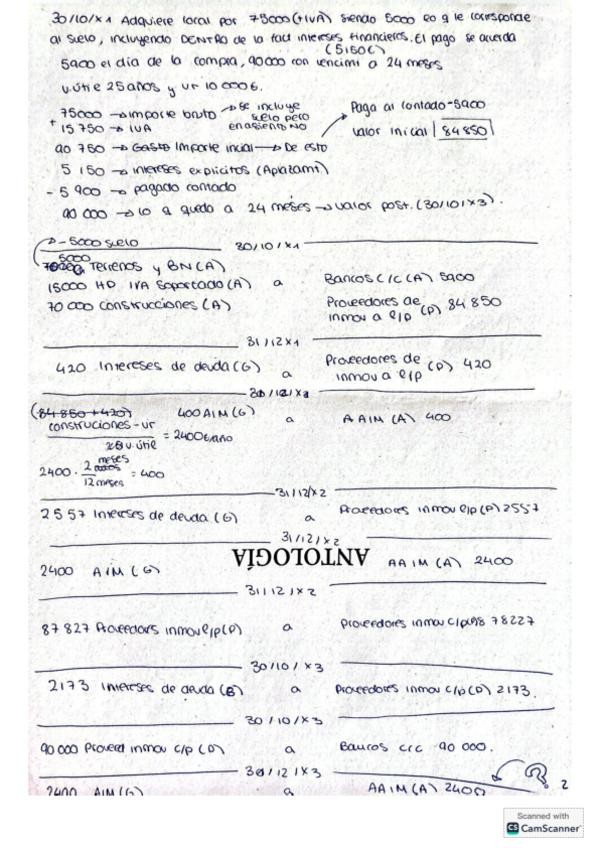 30/10/x1 Adquiere local por 75000 (+IVA) siendo 5000 eo q le corresponde
al suelo, incluyendo DENTRO de la fact intereses financieros. El pago se acuerda
(5150€)
5900 el día de la compra, 90000 con vencimi a 24 meses
v.útil 25 años y vr 10 000€.
75000 → Importe bruto → se incluye suelo pero en asiento NO
Paga al contado - 5900
+ 15 750 → IVA
valor inicial | 84 850 |
90 750 → Gasto Importe inicial → De esto
5 150 → intereses explicitos (Aplazami)
- 5 900 → pagado contado
90 000 → lo q queda a 24 meses → valor post. (30/10/x3).
- 5000 suelo
30/10/x1
5000 Terrenos y BN (A)
Bancos C/C (A) 5900
15000 HP IVA Soportado (A) a
70 000 construcciones (A)
Proveedores de inmov a l/p (P) 84 850
31/12x1
420 Intereses de deuda (G)
a
Proveedores de inmov a l/p (P) 420
31/12/x1
(84 850 + 420)
400 AIM (G)
a
AAIM (A) 400
construciones - vr
v.útil
= 2400€/año
2400 · 2 meses
12 meses
= 400
31/12/x2
2557 Intereses de deuda (G)
a
Proveedores inmov l/p (P) 2557
31/12/x2
ANTOLOGÍA
2400 AIM (G)
AAIM (A) 2400
31/12/x2
87 827 Proveedors inmov l/p (P)
a
Proveedores inmov c/p 78227
30/10/x3
2173 Intereses de deuda (G)
a
Proveedores inmov c/p (P) 2173.
30/10/x3
90 000 Proveed inmov c/p (P)
a
Bancos c/c 90 000.
31/12/x3
?
2
2400 AIM (G)
a
AAIM (A) 2400
Scanned with
CS CamScanner